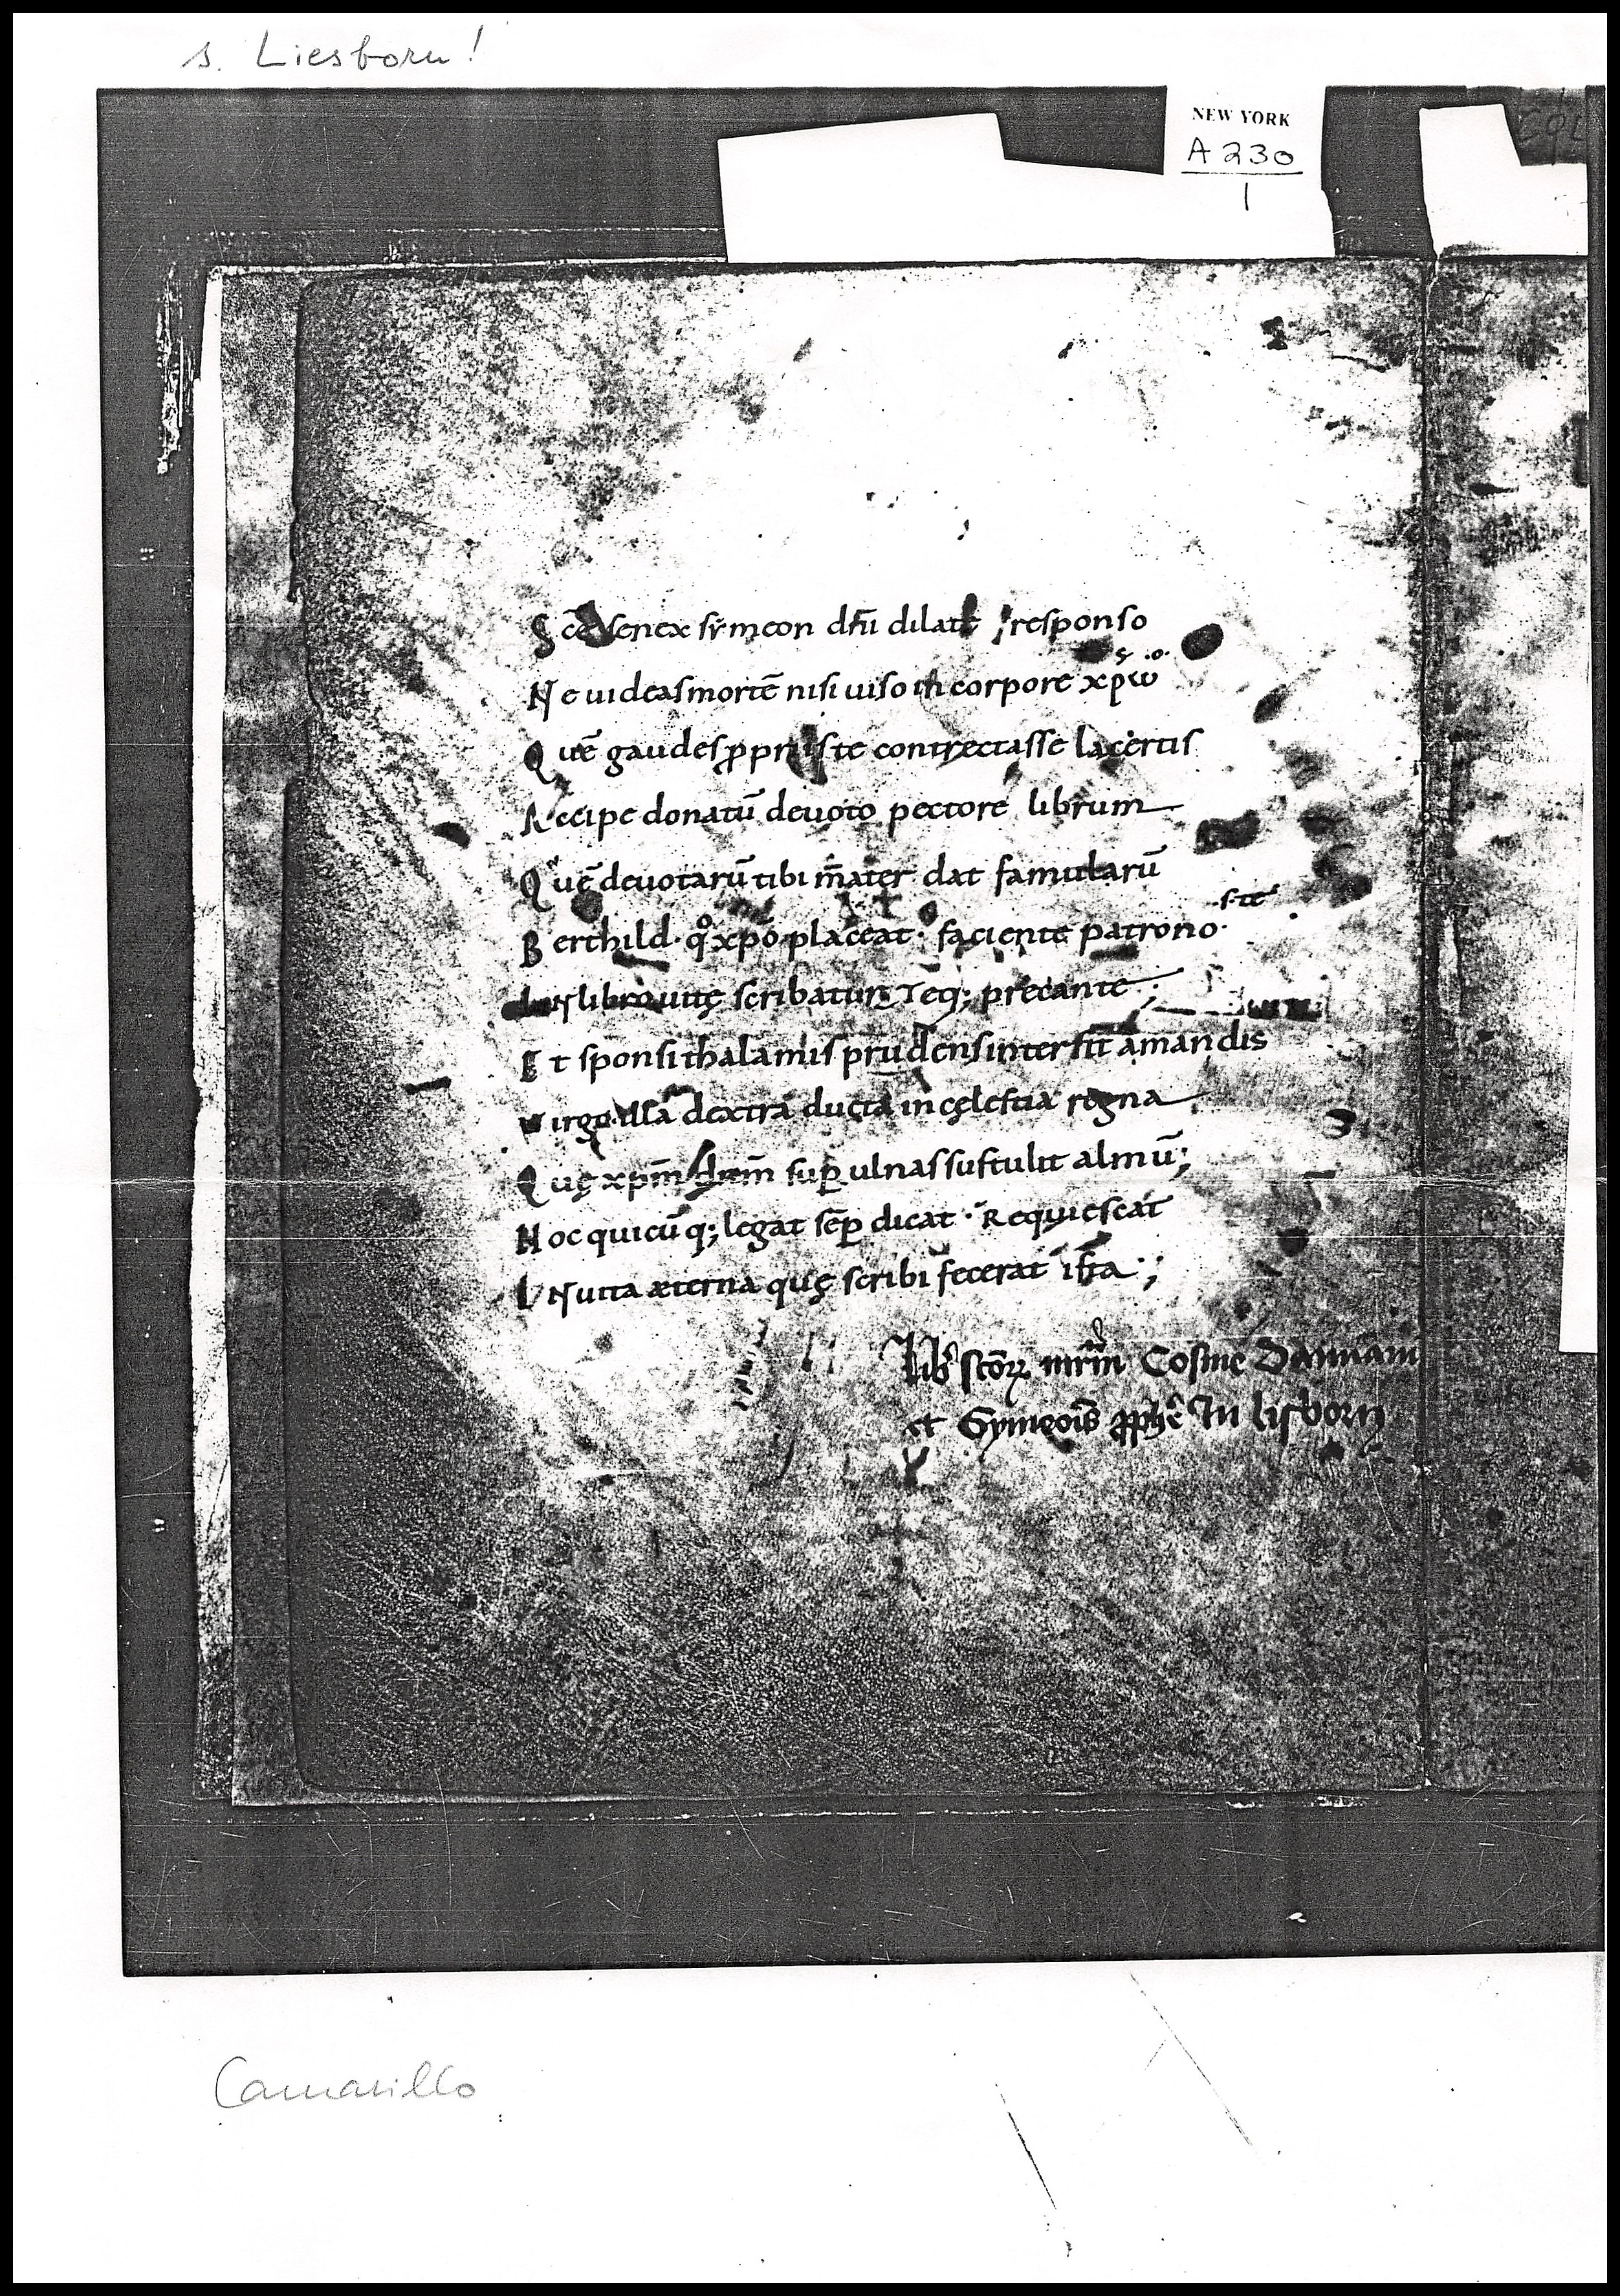 s. Liesborn!
NEW YORK
A 230
1
Scē senex sẏmeon dñi dilate responso
Ne uideas mortē nisi uiso in corpore xpω
s .o.
Quē gaudes ꝓpriis te contrectasse lacertis
Accipe donatū deuoto pectore librum
Quē deuotarū tibi m̄ater dat famularū
s te
Berthild· qͦ xp̄o placeat· faciente patrono·
IN libro uitę scribatur Teq; precante·;
Et sponsi thalamis prudens intersit amandis
uirgo illa dextra ducta in cęlestia regna
Quę xpm̄ dnm̄ suꝑ ulnas sustulit almū;
Hoc quicūq; legat sēꝑ dicat· Requiescat
IN uita æterna quę scribi fecerat ista·;
Lib̕ scōꝝ mr̄m Cosme Damiani
et Symeois ꝓphe In lisborn
Camarillo